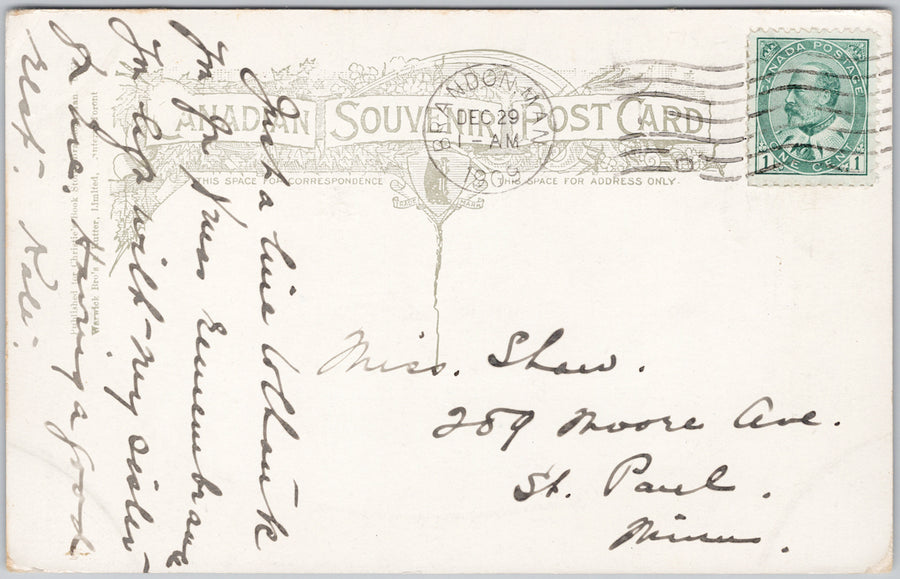 CANADIAN SOUVENIR POST CARD
THIS SPACE FOR CORRESPONDENCE
THIS SPACE FOR ADDRESS ONLY.
TRADE MARK
BRANDON·MAN
DEC 29
1 - AM
1909
CANADA POSTAGE
1 ONE CENT 1
Just a line to thank
you for your remembrance
Am
with my sister
Having a good
rest.
Miss. Shaw.
289 Moore Ave.
St. Paul.
Minn.
Published for Christie's Book Store
Warwick Bro's & Rutter, Limited,